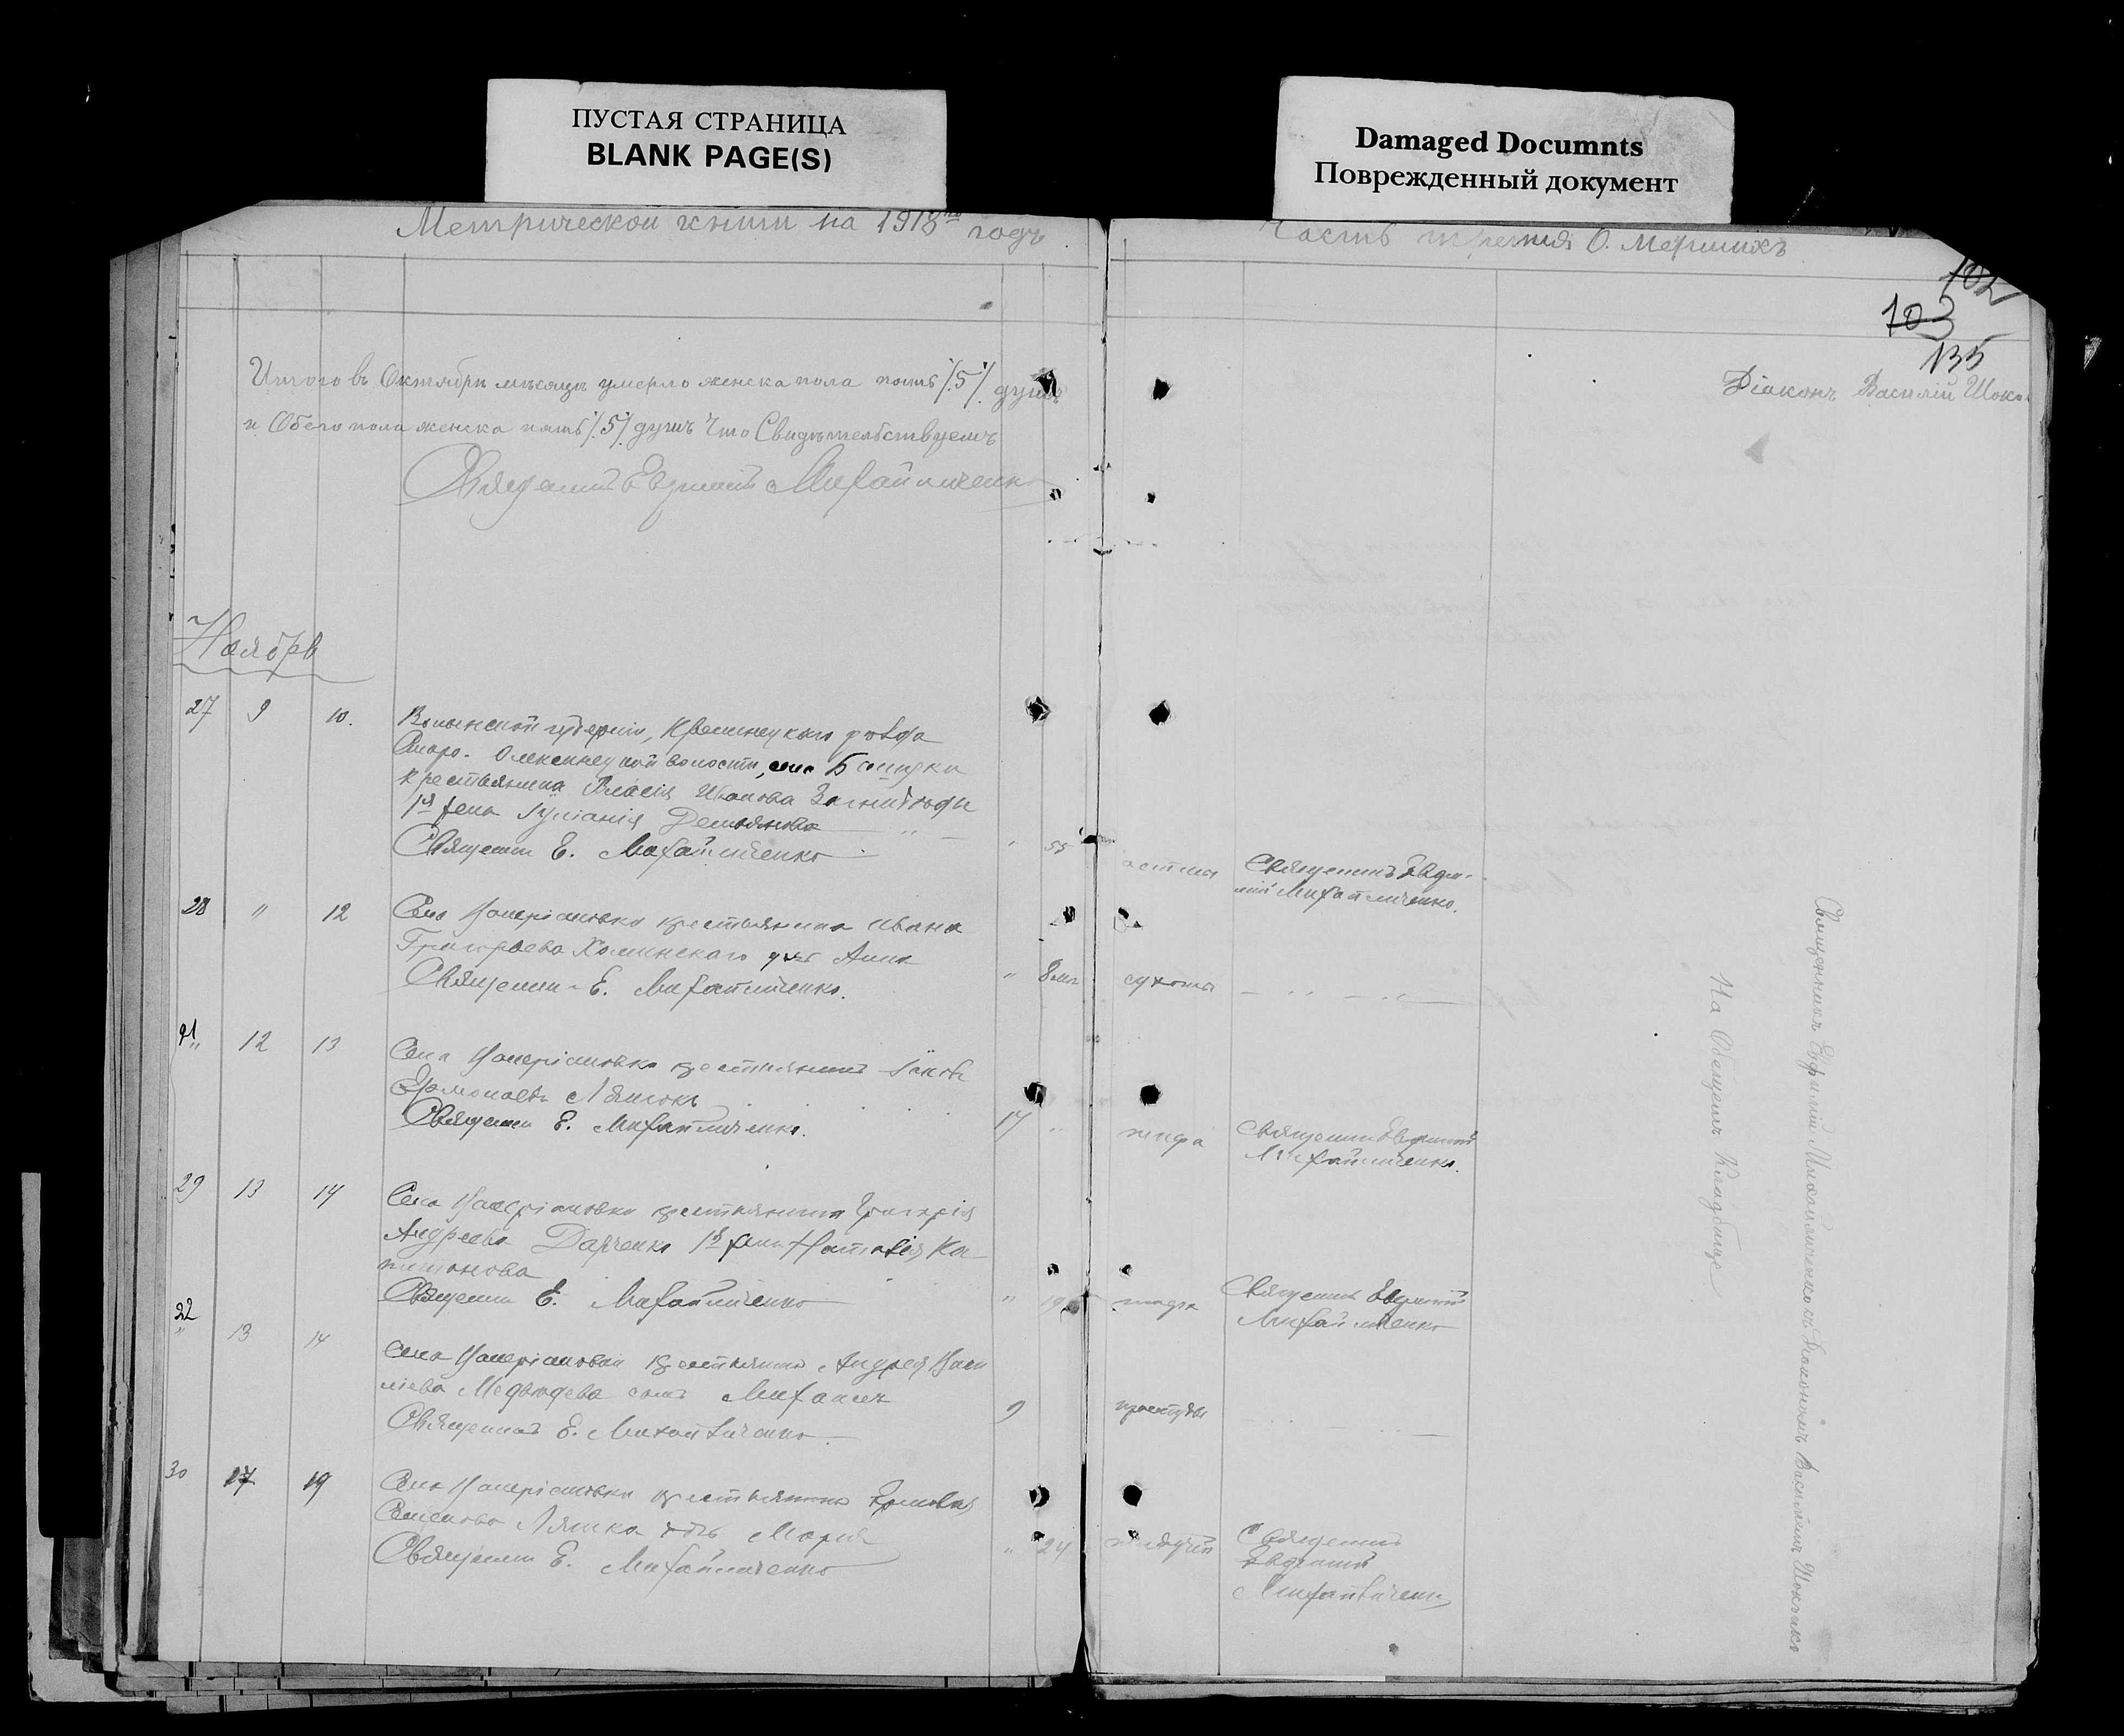 ПУСТАЯ СТРАНИЦА
BLANK PAGE(S)
Damaged Documnts
Поврежденный документ
Метрической книги на 1918 годъ
Часть третия О. Мершихъ
102
103
135
Итого въ Октябрѣ мѣсяцѣ умерло женска пола пять /5/ душъ
и Обего пола женска пять /5/ душъ Что Свидѣтельствуемъ
Священникъ Евфимій Михайличенко
Діаконъ Василій
Ноябрь
27 9 10. Волынской губерніи, Кременецкаго уѣзда
Старо- Олексинецкой волости, села
крестьянина Власія Иванова
1я жена Іуліанія Демьянова
Священ Е. Михайличенко " 55 астма Священникъ Евфи-
мій Михайличенко.
28 " 12 Села Валеріановки крестьянина Ивана
Григорьева Холинскаго дочь Анна
Священ Е. Михайличенко. " 8 мѣс сухоты
21 12 13 Села Валеріановки крестьянинъ Іаковъ
Ермолаевъ Ляшокъ
Священ Е. Михайличенко. 17 тифа Священ Евфимій
Михайличенко.
29 13 14 Села Валеріановки крестьянина Григорія
Андреева 1я жена Наталія Ка-
питонова
Священ Е. Михайличенко " 19 тифа Священникъ Евфимій
Михайличенко
22 13 14 Села Валеріановки крестьянина Андрея Васи
ліева Медвѣдева сынъ Михаилъ
Священникъ Е. Михайличенко. 9 простуды
30 17 19 Села Валеріановки крестьянина Ермолая
Семенова Ляшка дочь Марія
Священ Е. Михайличенко " 24 Священникъ
Евфимій
Михайличенко
На Обещемъ Кладбищѣ
Священникъ Евфимій Михайличенко съ Діакономъ Василіемъ